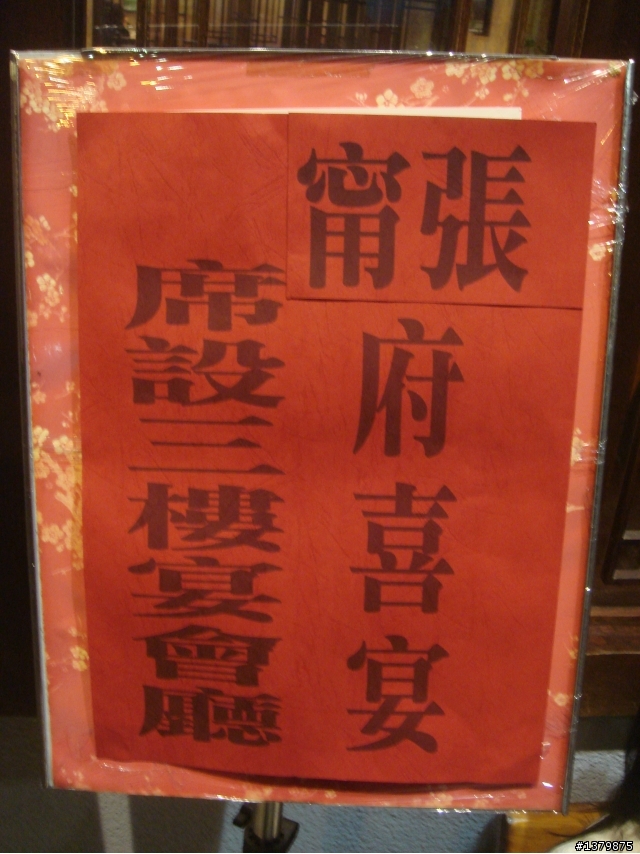 張甯
府喜宴
席設三樓宴會廳
#1379875